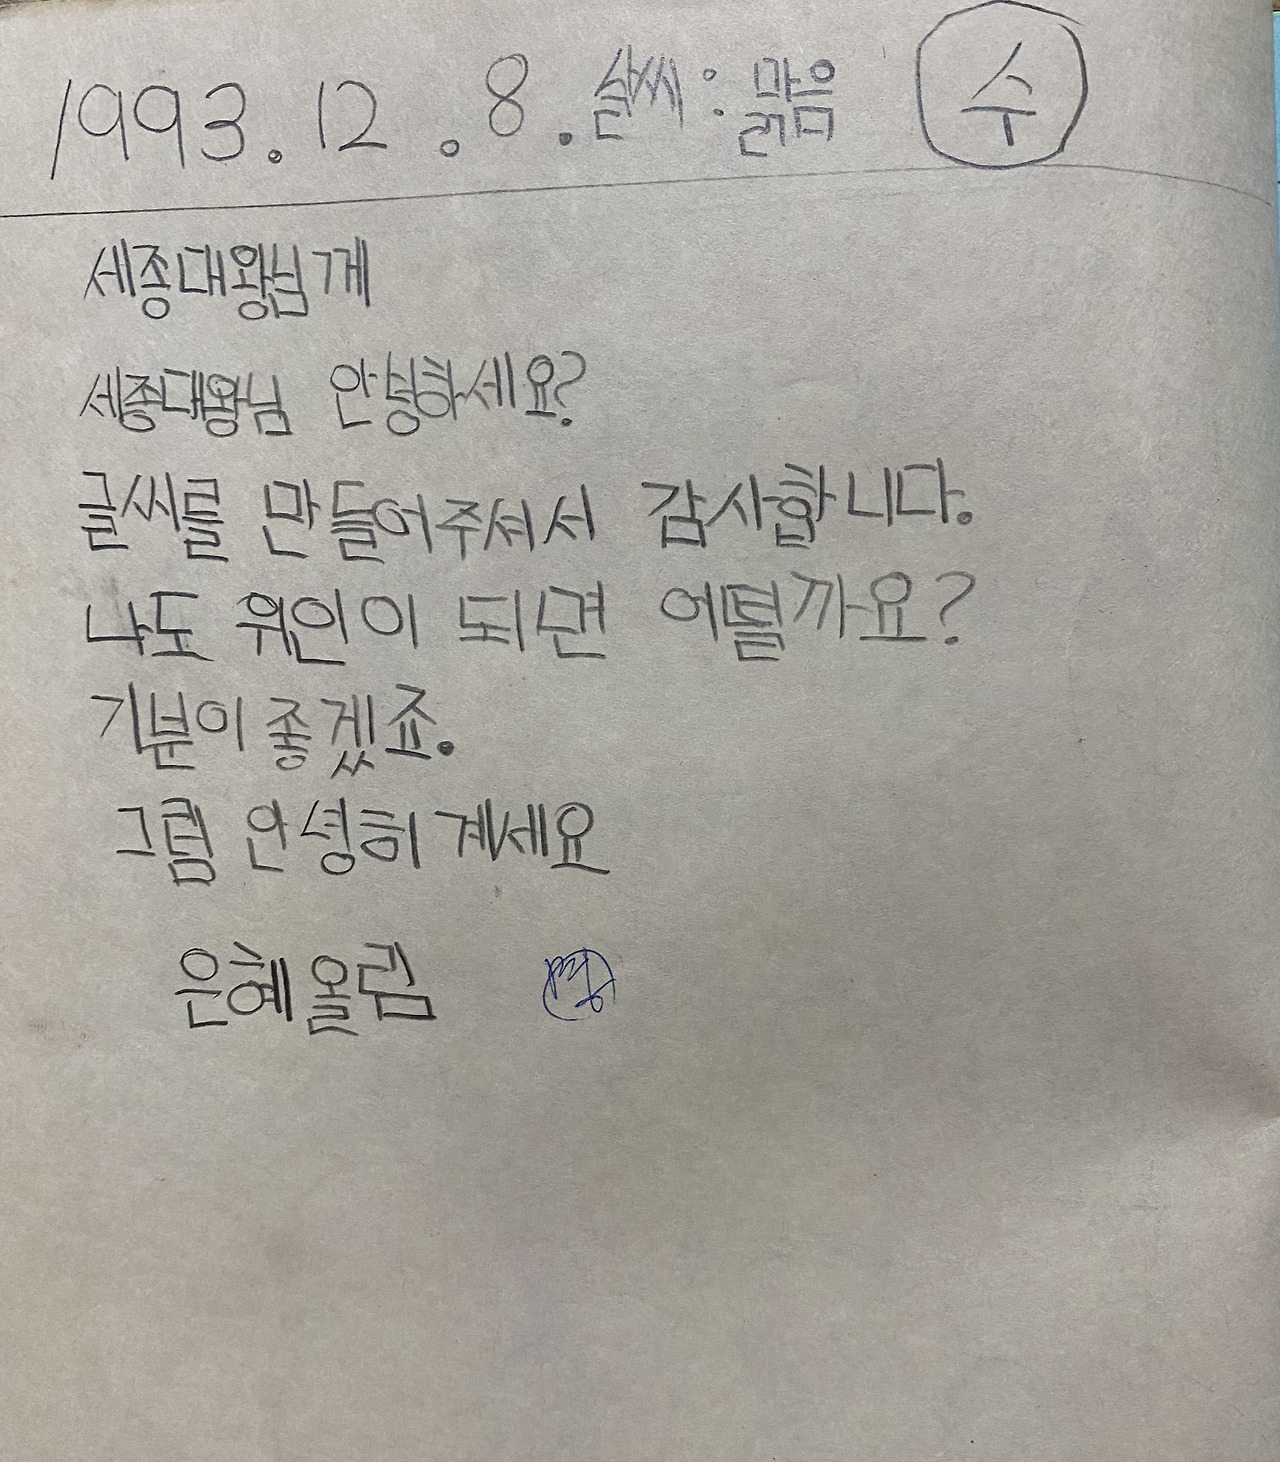 1993. 12. 8. 날씨: 맑음 수
세종대왕님께
세종대왕님 안녕하세요?
글씨를 만들어주셔서 감사합니다.
나도 위인이 되면 어떨까요?
기분이 좋겠죠.
그럼 안녕히 계세요
은혜올림